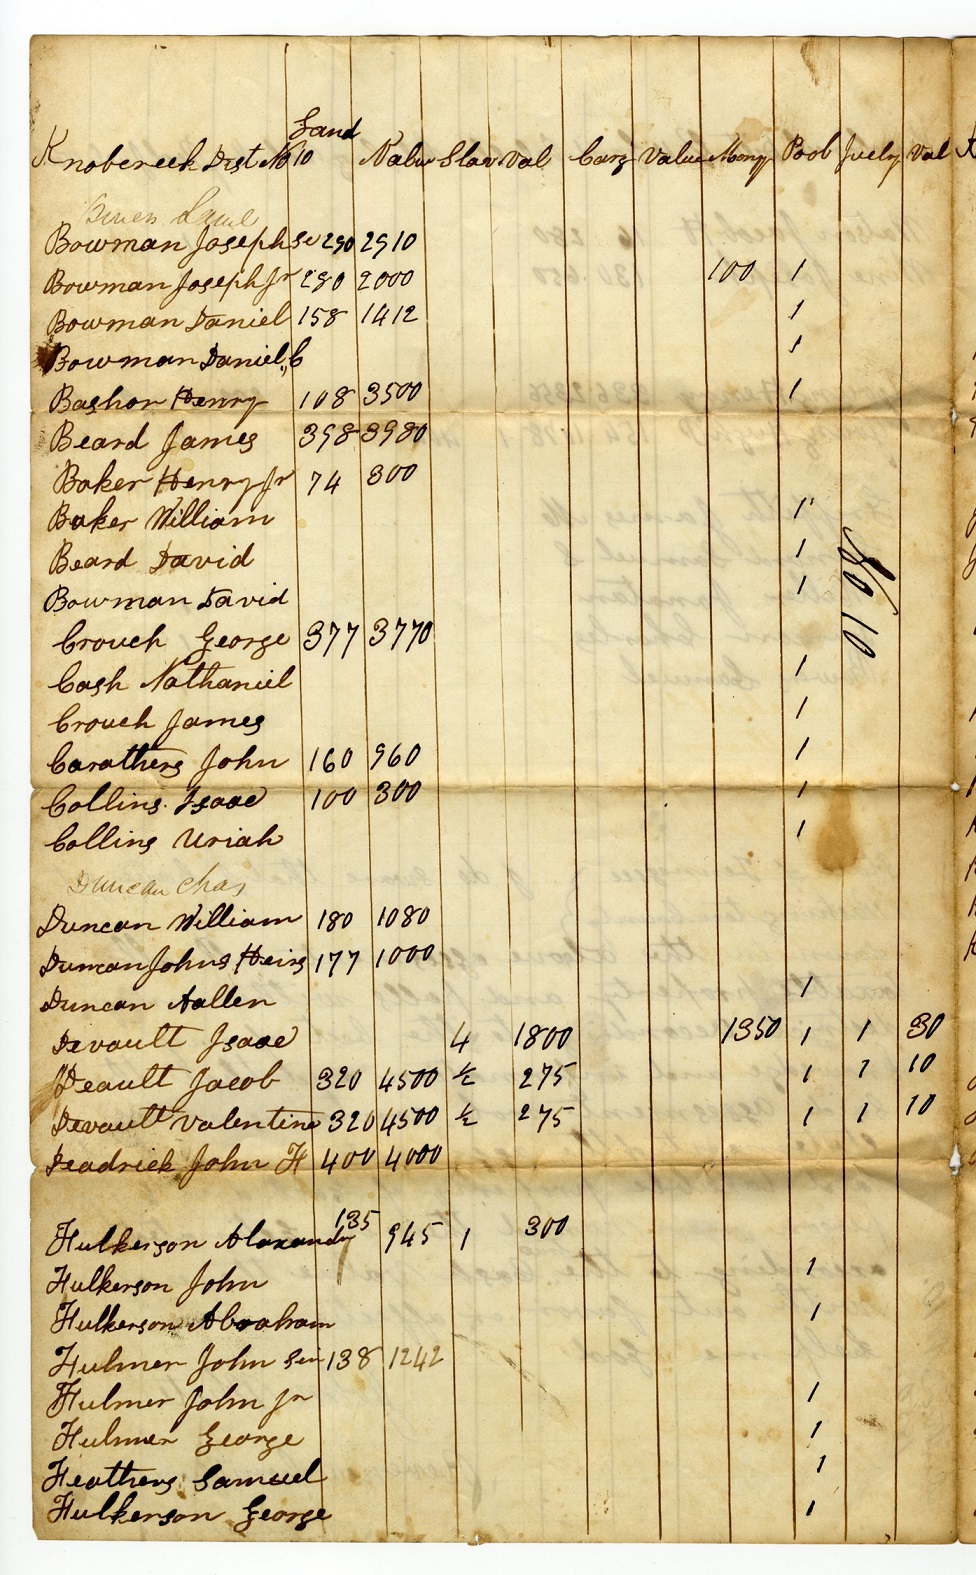 Land
Knobcreek Dist No 10 Value Slav Val Carg Value Mony Pool Juely Val
Bowman Joseph Se 290 2910
Bowman Joseph Jr 280 2000 100 1
Bowman Daniel 158 1412 1
Bowman Daniel, C 1
Bashor Henry 108 3500 1
Beard James 398 3980
Baker Henry Jr 74 300
Baker William 1
Beard David 1
Bowman David 1
Crouch George 377 3770
Cash Nathaniel 1
Crouch James 1
Carathers John 160 960 1
Collins Isaac 100 300 1
Collins Uriah 1
Duncan Chas
Duncan William 180 1080
Duncan Johns Heirs 177 1000
Duncan Aallen 1
Devault Isaac 4 1800 1350 1 1 30
Deault Jacob 320 4500 ½ 275 1 1 10
Devault Valentine 320 4500 ½ 275 1 1 10
Deadrick John H 400 4000
Hulkerson Alaxander 135 945 1 300
Hulkerson John 1
Hulkerson Abraham 1
Hulmer John Sen 138 1242
Hulmer John Jr 1
Hulmer George 1
Heathers Samuel 1
Hulkerson George 1